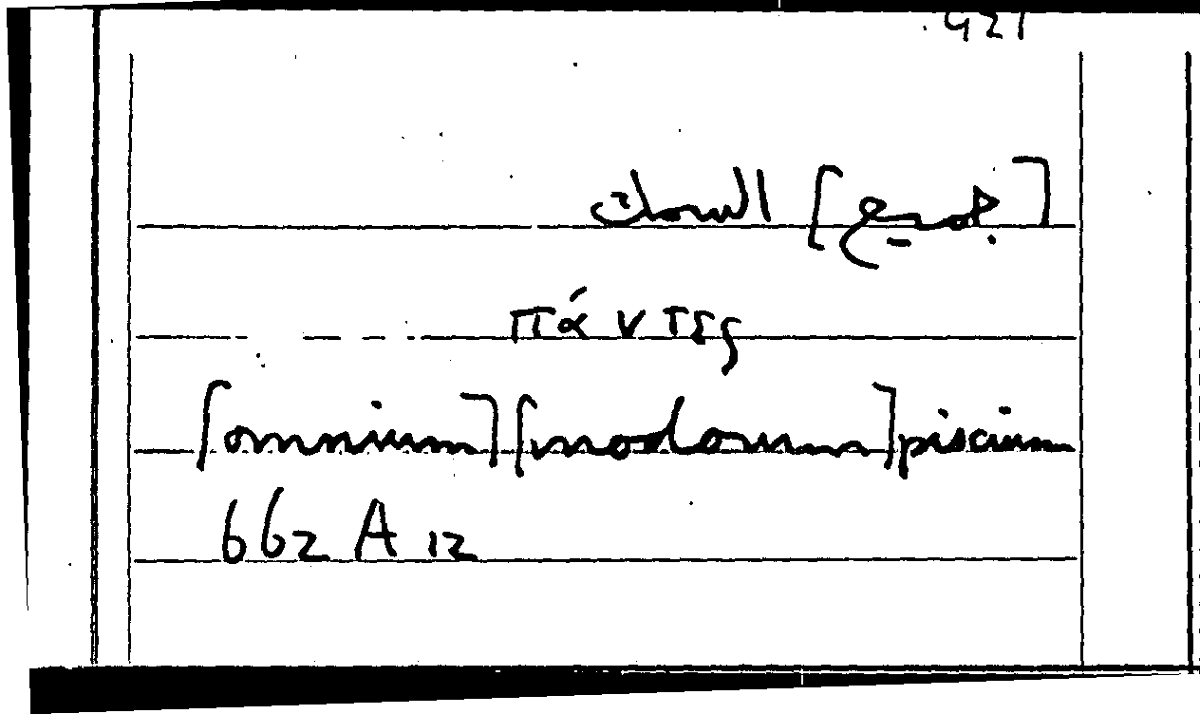 .921
[جميع] السمك
πάντες
[omnium] [modorum] piscium
662 A 12